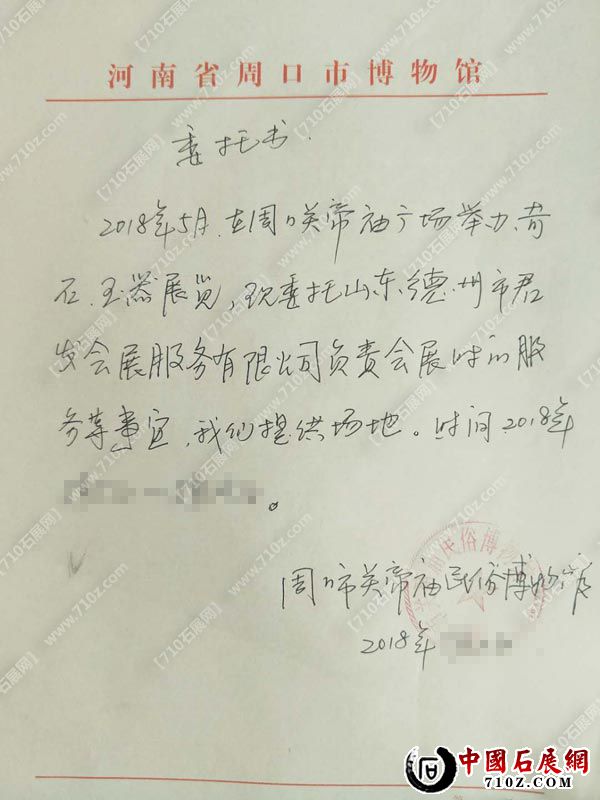 河南省周口市博物馆
委托书.
2018年5月.在周口关帝庙广场举办.奇
石.玉器展览,现委托山东.德州市君
发会展服务有限公司负责会展时的服
务等事宜,我们提供场地。时间2018年
。
民俗博物
周口市关帝庙民俗博物馆
2018年
中國石展網
710z.com
【710石展网】www.710z.com